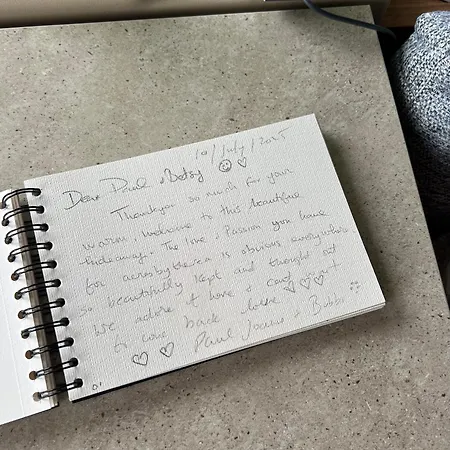 10/July/2025
Dear Paul & Betsy
Thankyou so much for your
warm, welcome to this beautiful
hideaway. The love & Passion you have
for is obvious everywhere
so beautifully kept and thought out
We adore it here & cant wait
to come back
Paul &